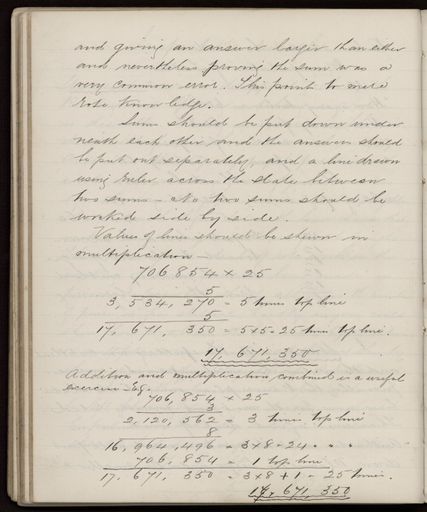 and giving an answer larger than either
and nevertheless proving the sum was a
very common error. This points to mere
Rote knowledge.
Sums should be put down under
neath each other and the answer should
be put out separately, and a line drawn
using ruler across the slate between
two sums - No two sums should be
worked side by side.
Values of lines should be shewn in
multiplication -
706854 x 25
5
3,534,270 = 5 times top line
5
17,671,350 = 5x5=25 times top line.
17,671,350
Addition and multiplication combined is a useful
exercise - Eg.
706,854 x 25
3
2,120,562 = 3 times top line
8
16,964,496 = 3x8=24 " " "
706,854 = 1 top line
17,671,350 = 3x8+1 = 25 times.
17,671,350